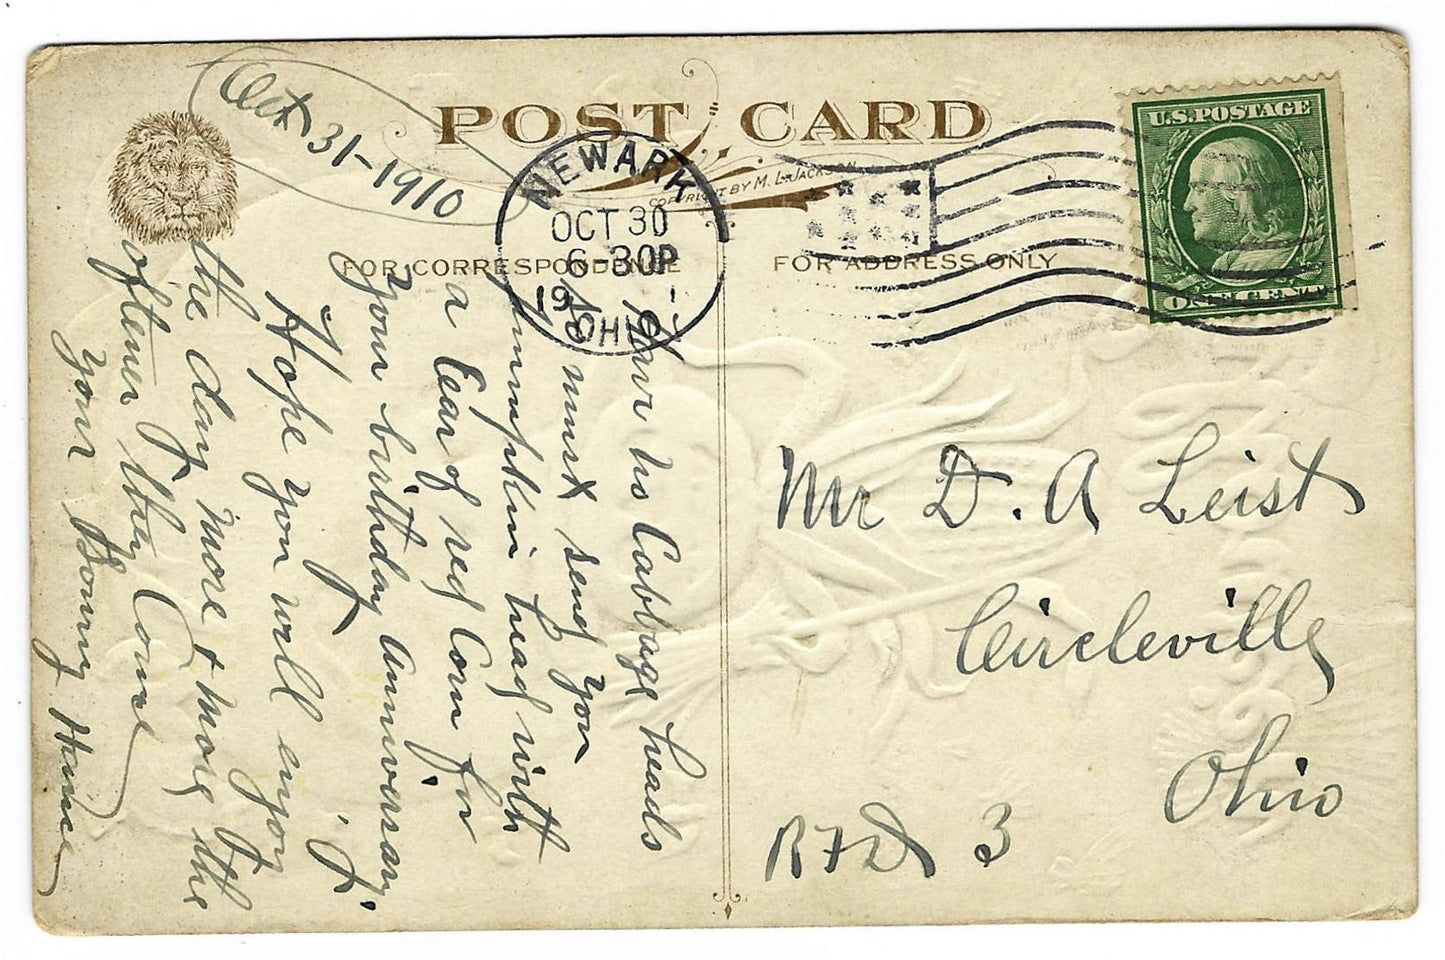 Oct 31-1910
POST CARD
COPYRIGHT BY M. L. JACKSON
NEWARK
OCT 30
6-30P
19
OHIO
U.S. POSTAGE
ONE CENT
FOR CORRESPONDENCE
FOR ADDRESS ONLY
Have no Cabbage heads
So must send you
pumpkin head with
a Ear of red Corn for
your birthday anniversary
Hope you will enjoy
the day more & more the
oftener they Come
your
Mr D. A Leist
Circleville
Ohio
RFD 3